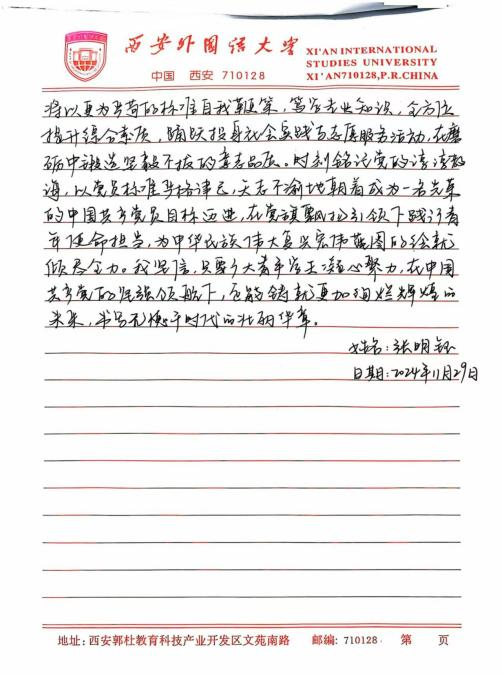 西安外国语大学
中国 西安 710128
XI'AN INTERNATIONAL
STUDIES UNIVERSITY
XI'AN710128,P.R.CHINA
将以更为严苛的标准自我鞭策，笃学专业知识，全方位
提升综合素质，踊跃投身社会实践与志愿服务活动，在磨
砺中锻造坚毅不拔的卓越品质。时刻铭记党的谆谆教
诲，以党员标准严格律己，矢志不渝地朝着成为一名光荣
的中国共产党员目标迈进，在党旗飘扬引领下践行青
年使命担当，为中华民族伟大复兴宏伟蓝图的绘就
倾尽全力。我坚信，只要广大青年学子凝心聚力，在中国
共产党的坚强领航下，必能铸就更加绚烂辉煌的
未来，书写无愧于时代的壮丽华章。
姓名：张明钰
日期：2024年11月29日
地址: 西安郭杜教育科技产业开发区文苑南路 邮编: 710128 第 页